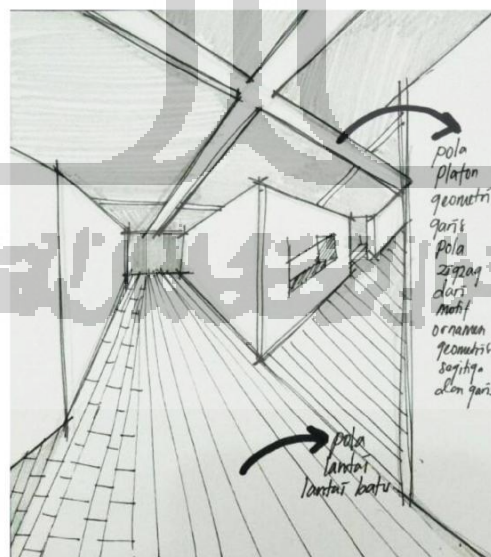 pola
platon
geometri
garis
pola
zigzag
dari
motif
ornamen
geometris
segitiga
dan garis
pola
lantai
lantai batu